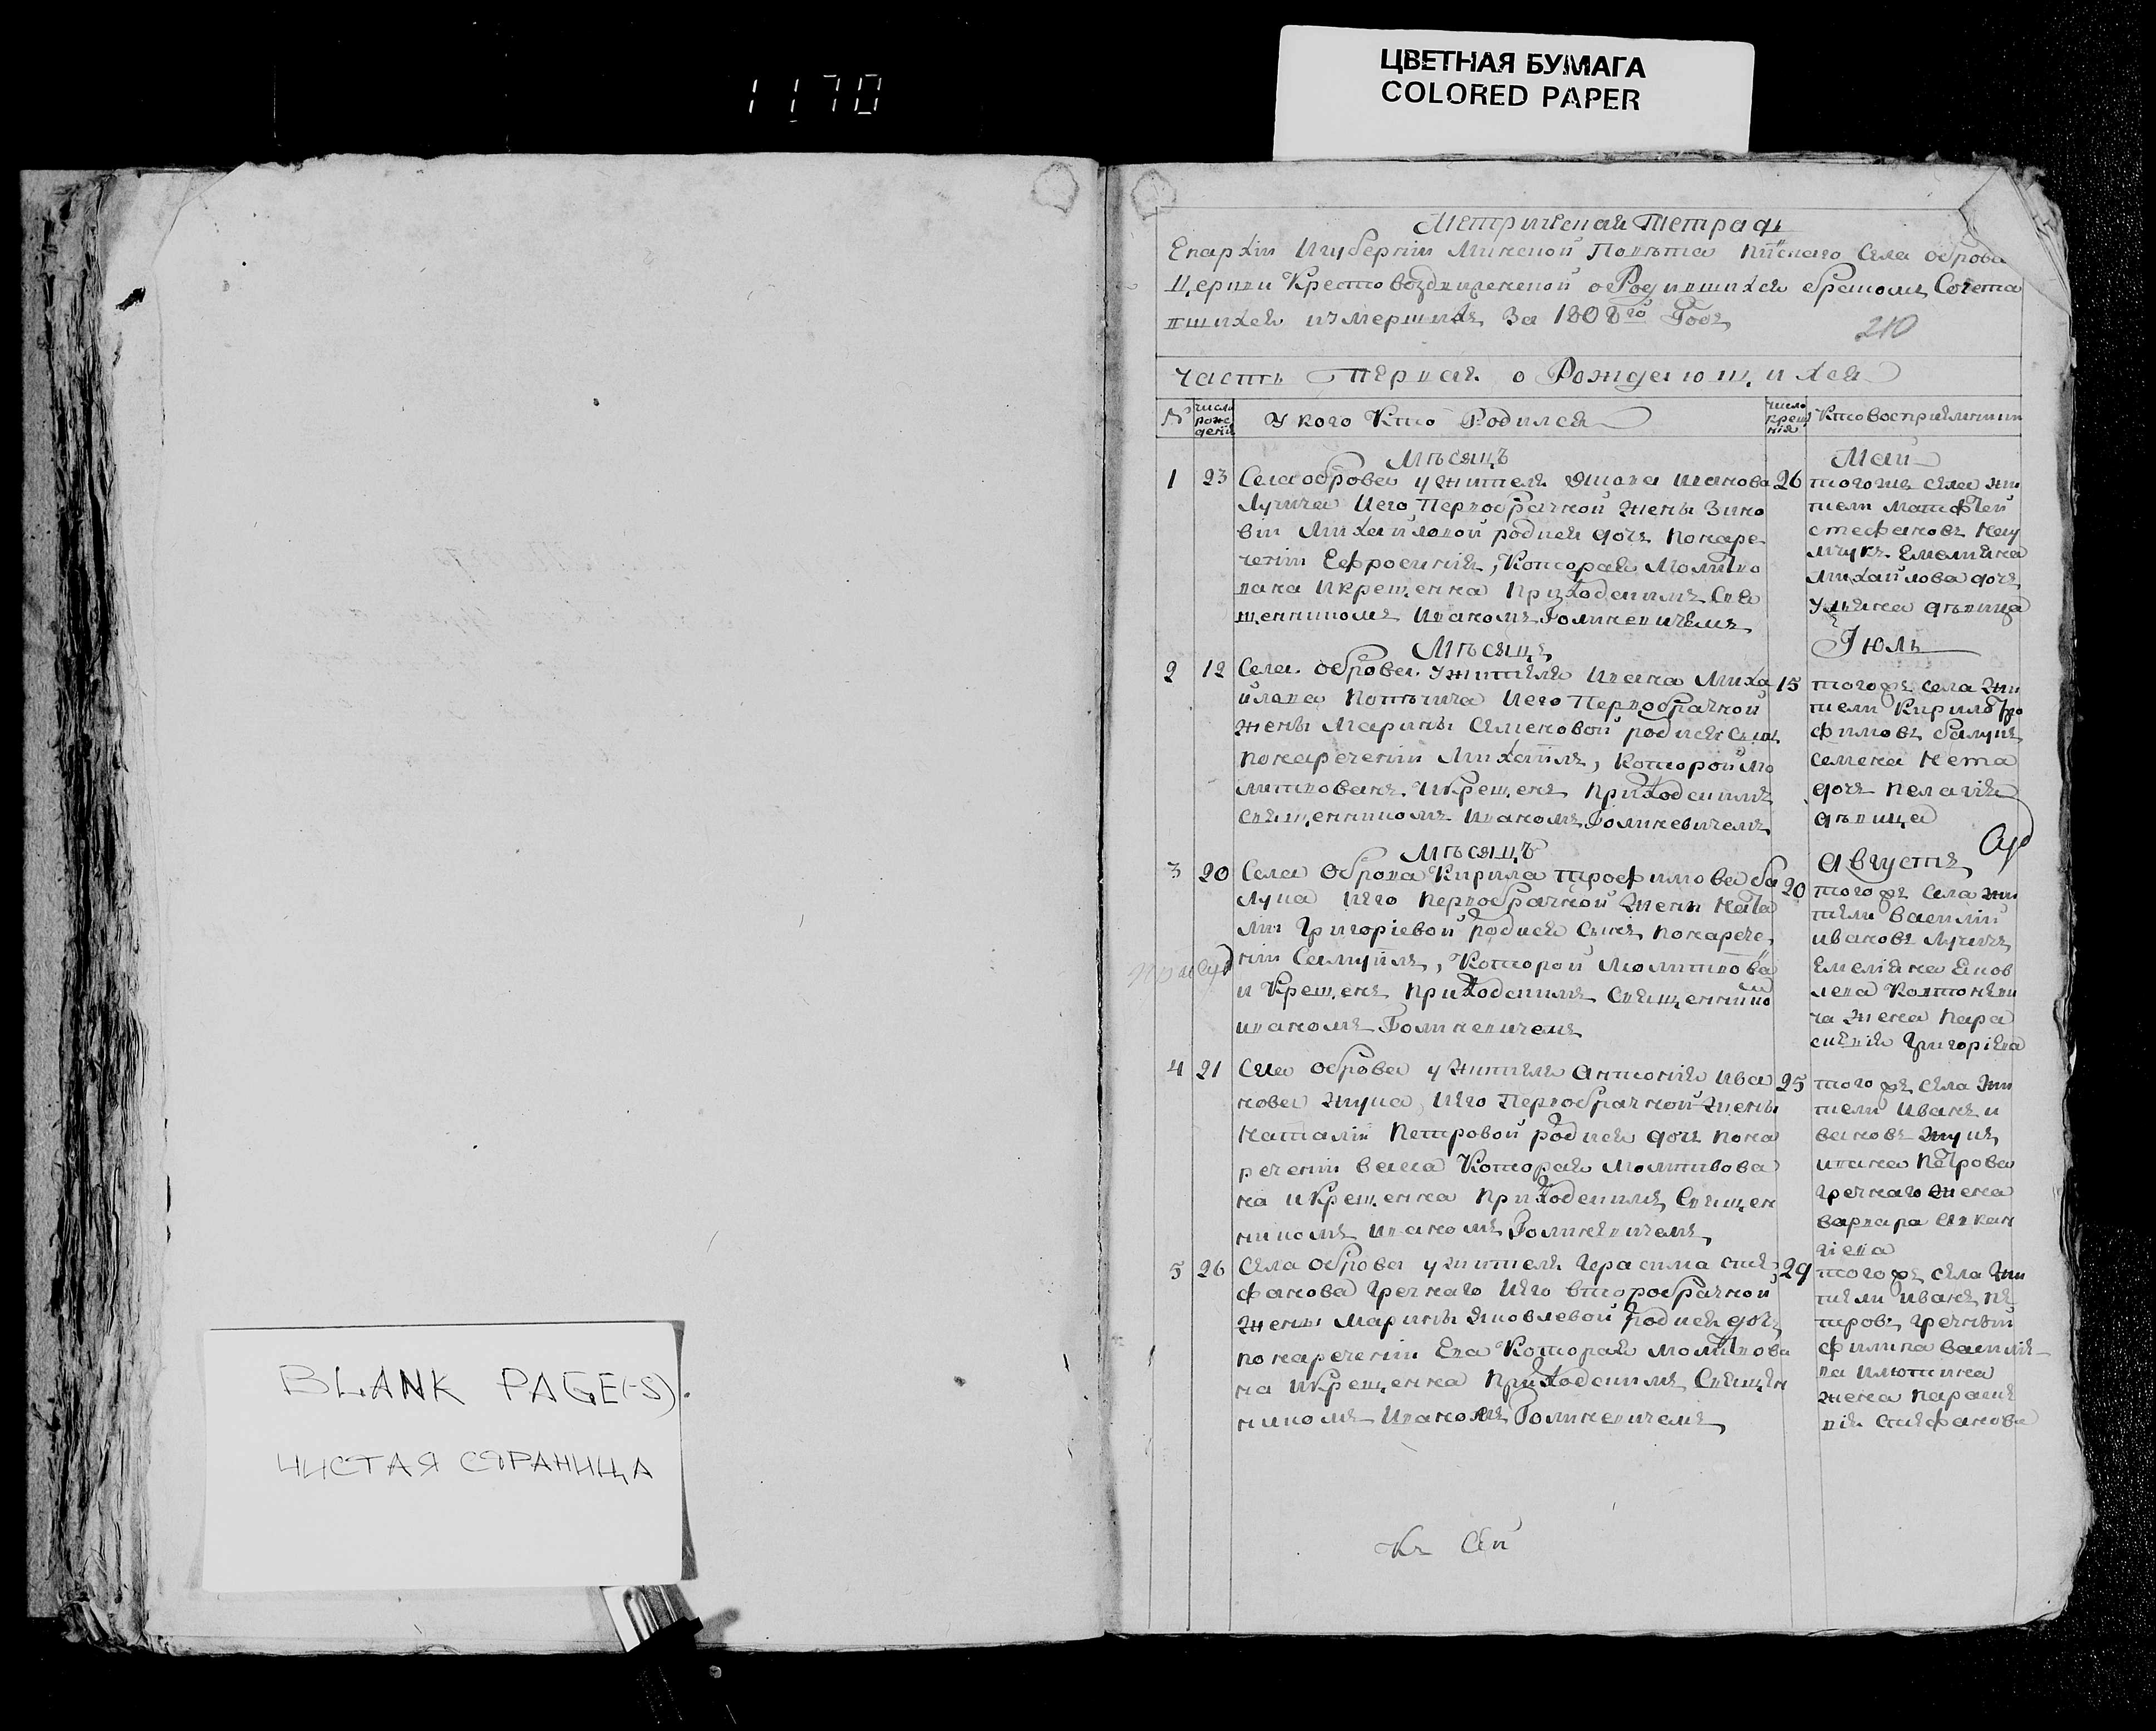 1170
ЦВЕТНАЯ БУМАГА
COLORED PAPER
BLANK PAGE(-S).
ЧИСТАЯ СТРАНИЦА
Метрическая Тетрадь
Епархіи Игуберніи Минской Повѣта Пинскаго Села оброва
Церкви Крестовоздвиженской о Родившихся бракомъ Сочета
вшихся иумершихъ За 1808го Годъ
210
Часть Первая о Рождающихся
№
число рождения
У кого Кто Родился
число крещения
Кто восприемники
Мѣсяцъ
Май
1 23 Села оброва у жителя Якова иванова
Лучича Иего Первобрачной жены Зино
віи Михайловой родися дочь Понаре
ченіи Ефросинія, Которая Молитво
вана Икрещенна Приходскимъ Свя
щенникомъ Иваномъ Голиневичемъ
26 тогожъ села жи
тели Матфей
стефановъ Нау
мчукъ Емелияна
Михайлова дочь
Ульяна дѣвица
Мѣсяцъ
Іюль
2 12 Села оброва Ужителя Ивана Миха
йлова Иего Первобрачной
жены Марины Семеновой родися сынъ
Понареченіи Михаилъ, Которой мо
литвованъ Икрещенъ Приходскимъ
священникомъ Иваномъ Голиневичемъ
15 тогожъ села жи
тели Кирило Тро
фимовъ балукъ
семена
дочь Пелагія
дѣвица
Мѣсяцъ
Августъ
3 20 Села Оброва Кирила трофимова ба
лука Иего первобрачной жены Ната
ліи Григоріевой родися сынъ понарече
ніи Самуилъ, Которой Молитвова
и Крещенъ Приходскимъ Священнико
иваномъ Голиневичемъ
20 тогожъ села жи
тели Василій
ивановъ Лучичъ
Емеліяна Яков
лева
ча жена Пара
скевія Григоріева
4 21 Села оброва у жителя антонія ива
нова жука, Иего Первобрачной жены
наталіи Петровой родися дочь пона
реченіи Васса Которая молитвова
на и Крещенна Приходскимъ Священ
никомъ Иваномъ Голиневичемъ
25 тогожъ села жи
тели Иванъ и
вановъ жукъ
ивана Петрова
гречнаго жена
варвара
5 26 Села оброва у жителя Герасима сте
фанова гречнаго Иего второбрачной
жены Марины Яковлевой родися дочь
понареченіи Ева Которая молитвова
на Икрещенна Приходскимъ Священ
никомъ Иваномъ Голиневичемъ
29 тогожъ села жи
тели Иванъ Пе
тровъ Гречный
филипа василіе
ва
жена Параске
вія Стефанова